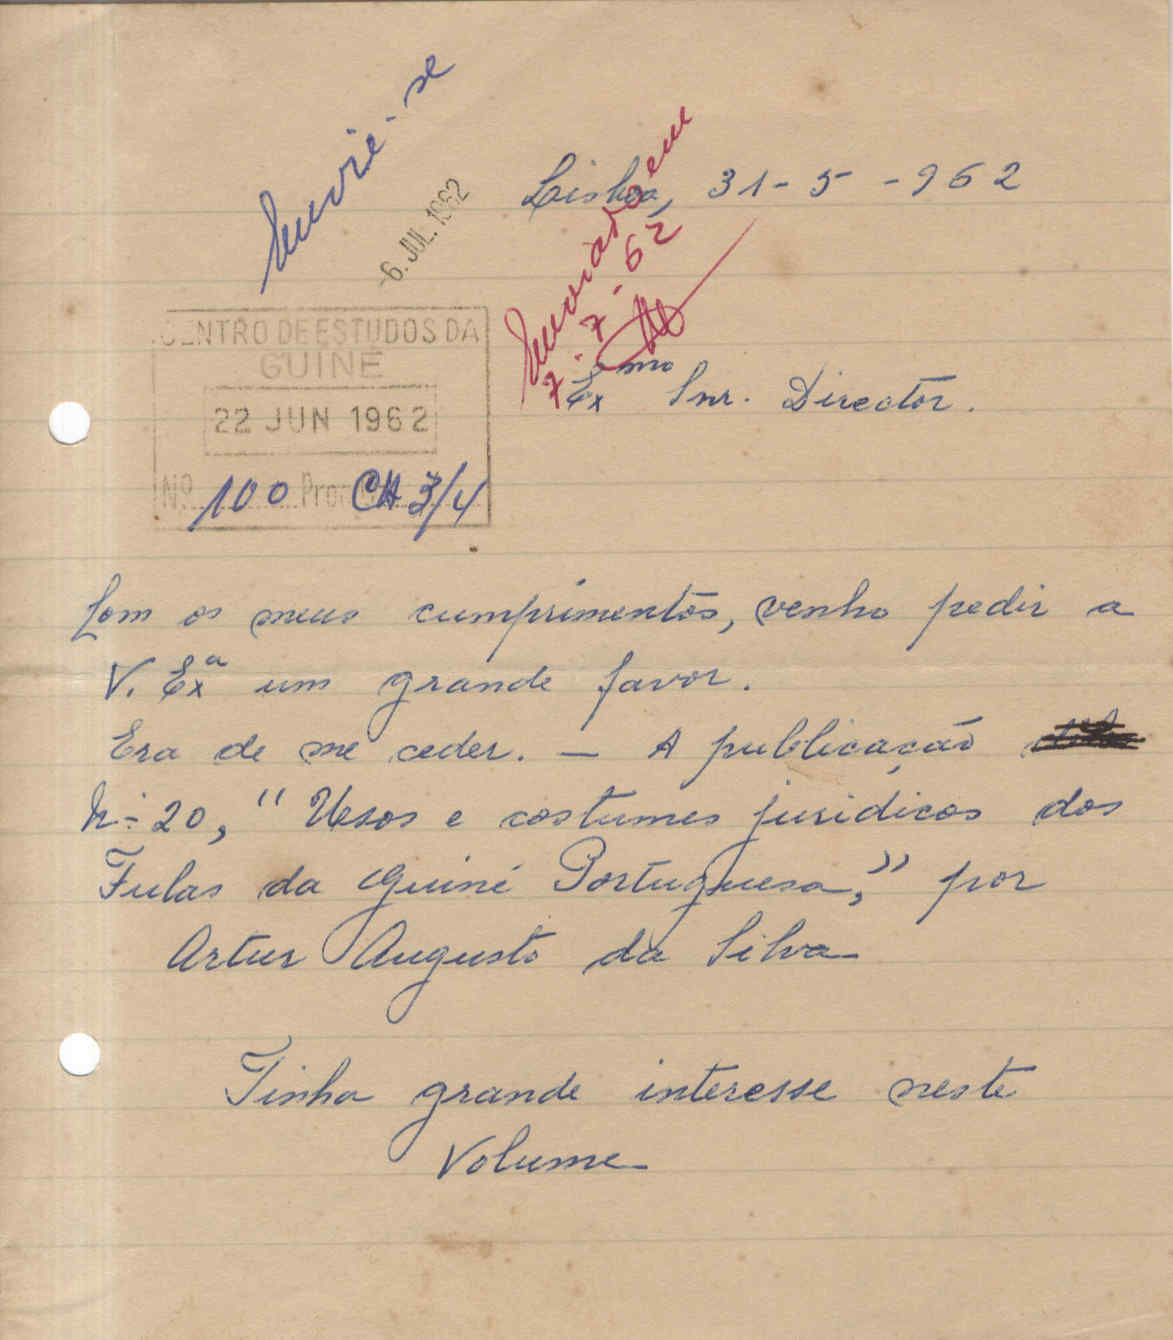 Envie-se
-6. JUL. 1962
Lisboa, 31-5-962
Enviado em
7-7-62
CENTRO DE ESTUDOS DA
GUINÉ
22 JUN 1962
Nº 100 Proc. CA 3/4
Exmo Snr. Director.
Com os meus cumprimentos, venho pedir a
V. Exª um grande favor.
Era de me ceder. — A publicação
Nº 20, "Usos e costumes juridicos dos
Fulas da Guiné Portuguesa," por
Artur Augusto da Silva
Tinha grande interesse neste
Volume